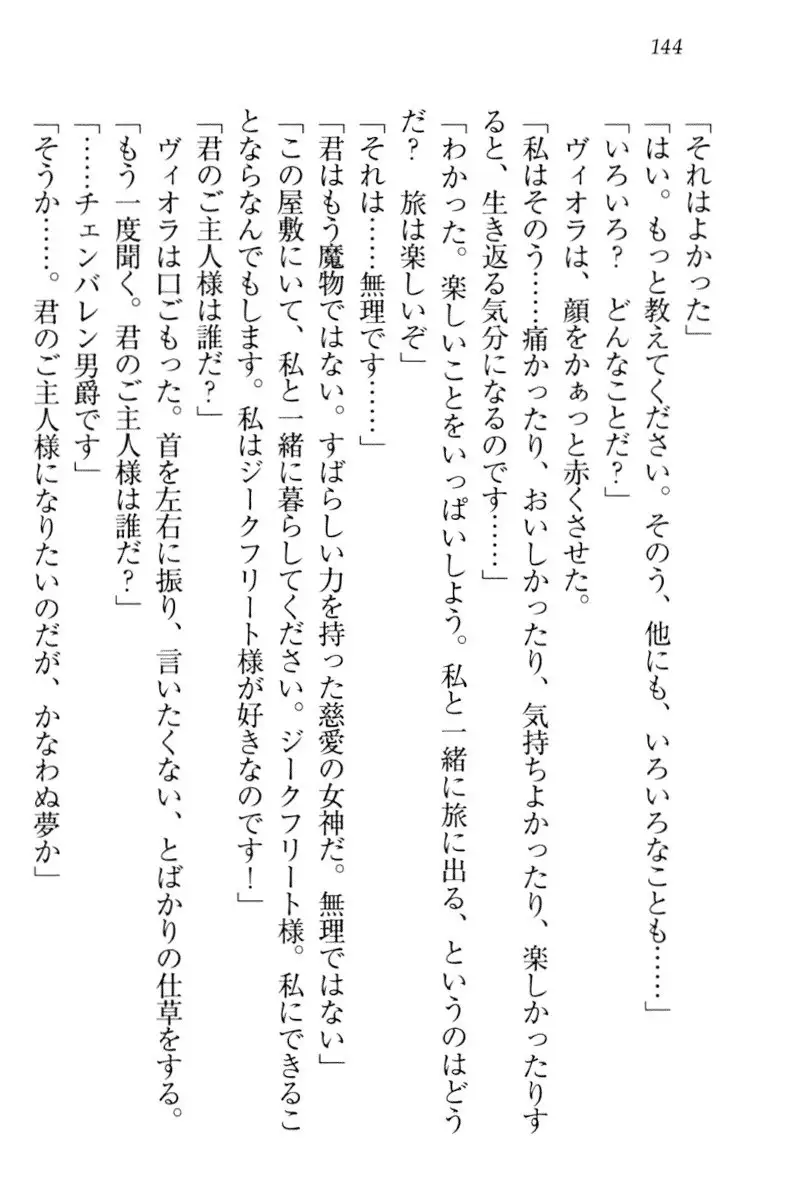 144
「それはよかった」
「はい。もっと教えてください。そのう、他にも、いろいろなことも……」
「いろいろ？　どんなことだ？」
　ヴィオラは、顔をかぁっと赤くさせた。
「私はそのう……痛かったり、おいしかったり、気持ちよかったり、楽しかったりす
ると、生き返る気分になるのです……」
「わかった。楽しいことをいっぱいしよう。私と一緒に旅に出る、というのはどう
だ？　旅は楽しいぞ」
「それは……無理です……」
「君はもう魔物ではない。すばらしい力を持った慈愛の女神だ。無理ではない」
「この屋敷にいて、私と一緒に暮らしてください。ジークフリート様。私にできるこ
とならなんでもします。私はジークフリート様が好きなのです！」
「君のご主人様は誰だ？」
　ヴィオラは口ごもった。首を左右に振り、言いたくない、とばかりの仕草をする。
「もう一度聞く。君のご主人様は誰だ？」
「……チェンバレン男爵です」
「そうか……。君のご主人様になりたいのだが、かなわぬ夢か」